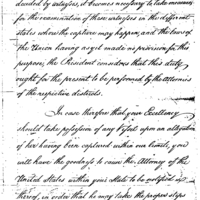 decided by arbiters, it becomes necessary to take measures
for the examination of these arbiters in the different
states where the capture may happen, and the laws of
the Union having as yet made no provision for this
purpose, the President considers that this duty
ought for the present to be performed by the Attornies
of the respective districts.
In case therefore that your Excellency
should take possession of any Vessel upon an allegation
of her having been captured within our limits, you
will have the goodness to cause the Attorney of the
United States within your State to be notified
thereof, in order that he may take the proper steps